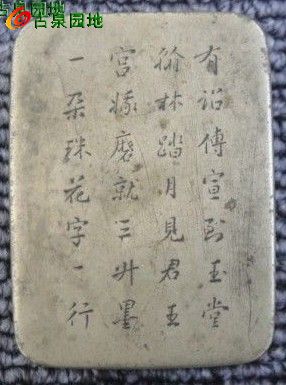 古泉园地
有詔傳宣到玉堂
翰林踏月見君王
宮嬪磨就三升墨
一朵珠花字一行